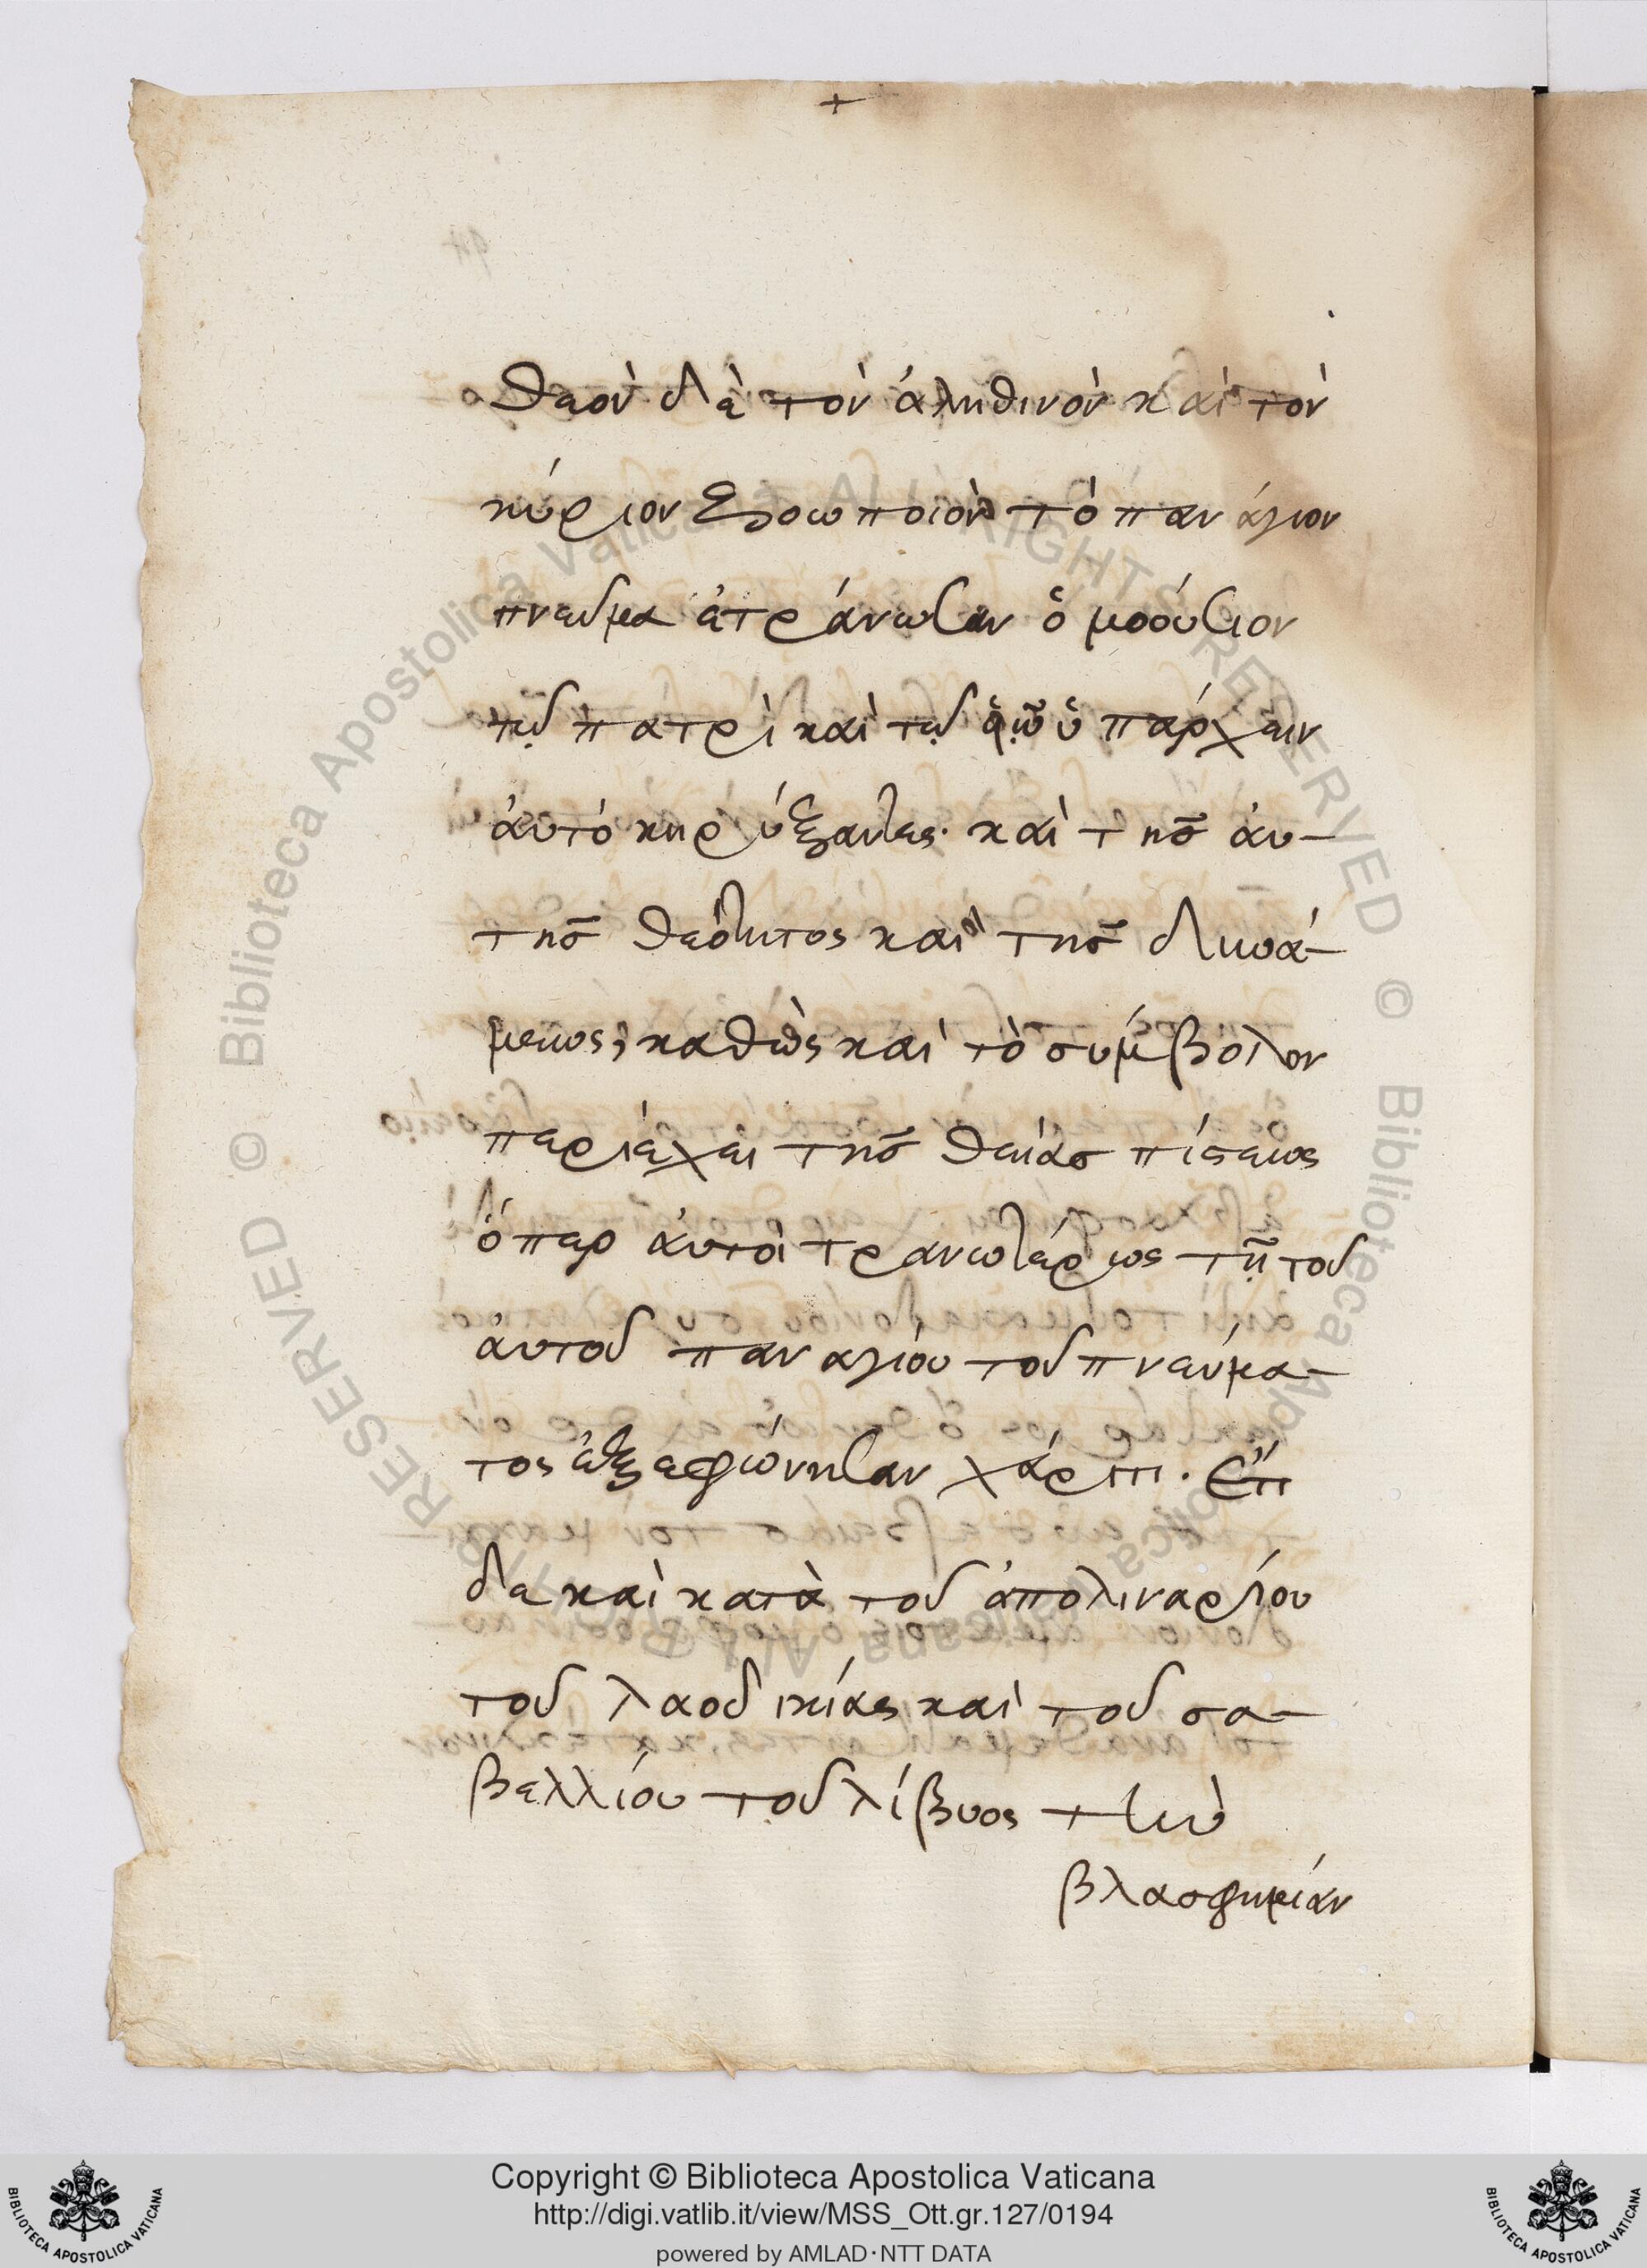 +
θεὸν δὲ τὸν ἀληθινὸν καὶ τὸν
κύριον ζωοποιὸν τὸ πανάγιον
πνεῦμα ἐτράνωσαν ὁμοούσιον
τῷ πατρὶ καὶ τῷ υἱῷ ὑπάρχειν
ἀυτὸ κηρύξαντες· καὶ τῆς ἀυ-
τῆς θεότητος καὶ τῆς δυνά-
μεως, καθὼς καὶ τὸ σύμβολον
περιέχει τῆς θείας πίστεως
ὅπερ ἀυτοὶ τρανωτέρως τῇ τοῦ
ἀυτοῦ παναγίου τοῦ πνεύμα-
τος ἐξεφώνησαν χάριτι. Ἔτι
δὲ καὶ κατὰ τοῦ ἀπολιναρίου
τοῦ λαοδικίας καὶ τοῦ σα-
βελλίου τοῦ λίβυος τὴν
βλασφημίαν
Copyright © Biblioteca Apostolica Vaticana
http://digi.vatlib.it/view/MSS_Ott.gr.127/0194
powered by AMLAD·NTT DATA
BIBLIOTECA APOSTOLICA VATICANA
BIBLIOTECA APOSTOLICA VATICANA